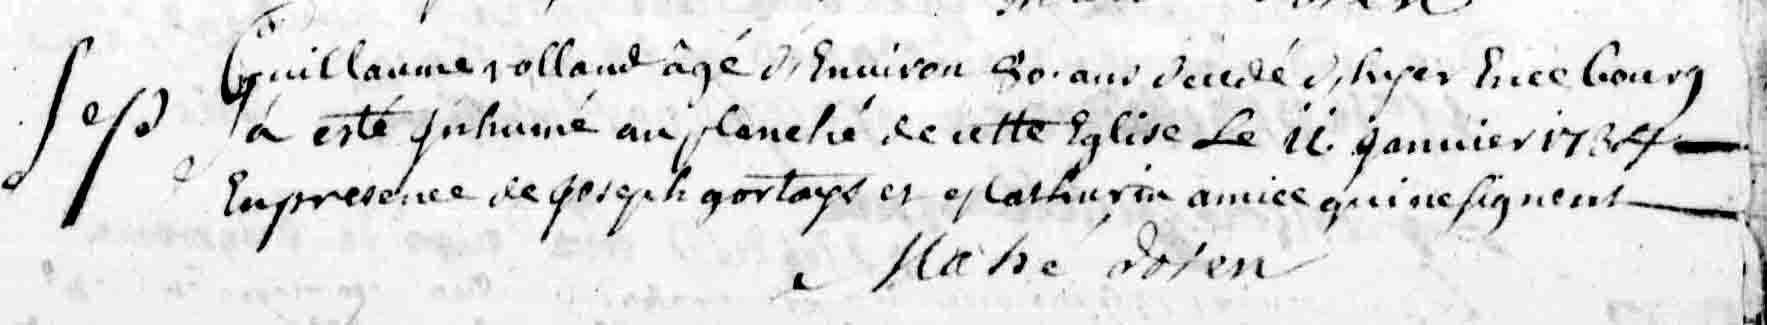 Sep. Guillaume rolland âgé d'Environ 80. ans decedé d'hyer En ce bourg
a esté Inhumé au planché de cette Eglise Le 11. janvier 1734
En presence de joseph gortays et Mathurin amice qui ne signent
Mahé doyen